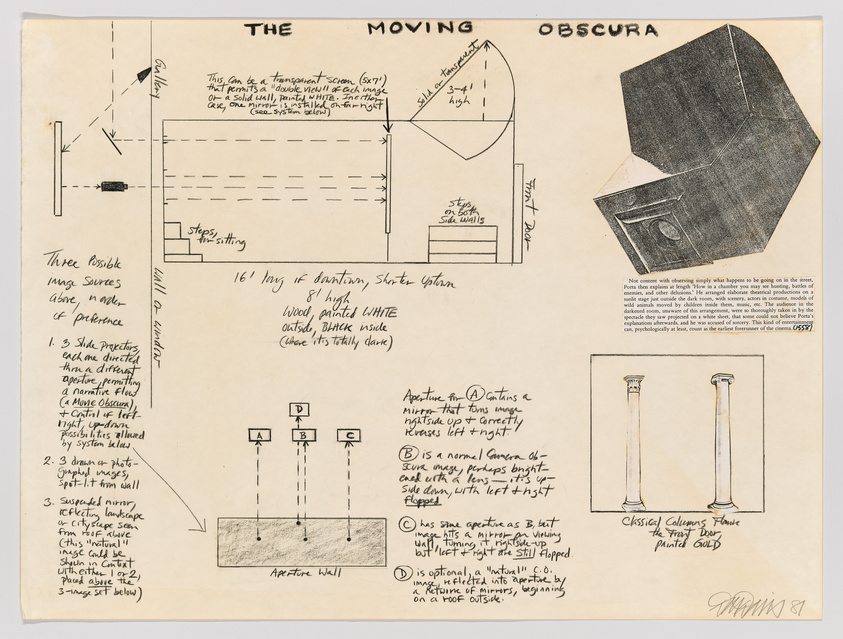 THE MOVING OBSCURA
This can be a transparent screen (5x7')
that permits a "double view" of each image
or a solid wall, painted WHITE. In either
case, one mirror is installed on far right
(see system below)
Solid or transparent
3-4'
high
Gallery
wall or window
Steps,
for sitting
Steps
on both
Side Walls
Front Door
16' long if downtown, Shorter Uptown
8' high
Wood, painted WHITE
outside, BLACK inside
(where it is totally dark)
Three Possible
image Sources
above, in order
of preference
1. 3 Slide Projectors,
each one directed
thru a different
aperture, permitting
a narrative flow
(a Movie Obscura)
+ Control of left-
right, up-down
possibilities allowed
by system below
2. 3 drawn or photo-
graphed images,
spot-lit from wall
3. Suspended mirror,
reflecting landscape
or cityscape seen
from roof above
(this "natural"
image could be
shown in context
with either 1 or 2,
placed above the
3-image set below)
Not content with observing simply what happens to be going on in the street,
Porta then explains at length 'How in a chamber you may see hunting, battles of
enemies, and other delusions.' He arranged elaborate theatrical productions on a
sunlit stage just outside the dark room, with scenery, actors in costume, models of
wild animals moved by children inside them, music, etc. The audience in the
darkened room, unaware of this arrangement, were so thoroughly taken in by the
spectacle they saw projected on a white sheet, that some could not believe Porta's
explanations afterwards, and he was accused of sorcery. This kind of entertainment
can, psychologically at least, count as the earliest forerunner of the cinema. (1558)
D
A
B
C
Aperture Wall
Aperture for A Contains a
mirror that turns image
rightside up + Correctly
reverses left + right
B is a normal Camera Ob-
scura image, perhaps bright-
ened with a lens — it is up-
side down, with left + right
flopped
C has same aperture as B, but
image hits a mirror on viewing
wall, turning it rightside-up
but left + right are Still flopped
D is optional, a "natural" C.O.
image, reflected into aperture by
a network of mirrors, beginning
on a roof outside.
Classical Columns Flank
the Front Door
painted GOLD
81